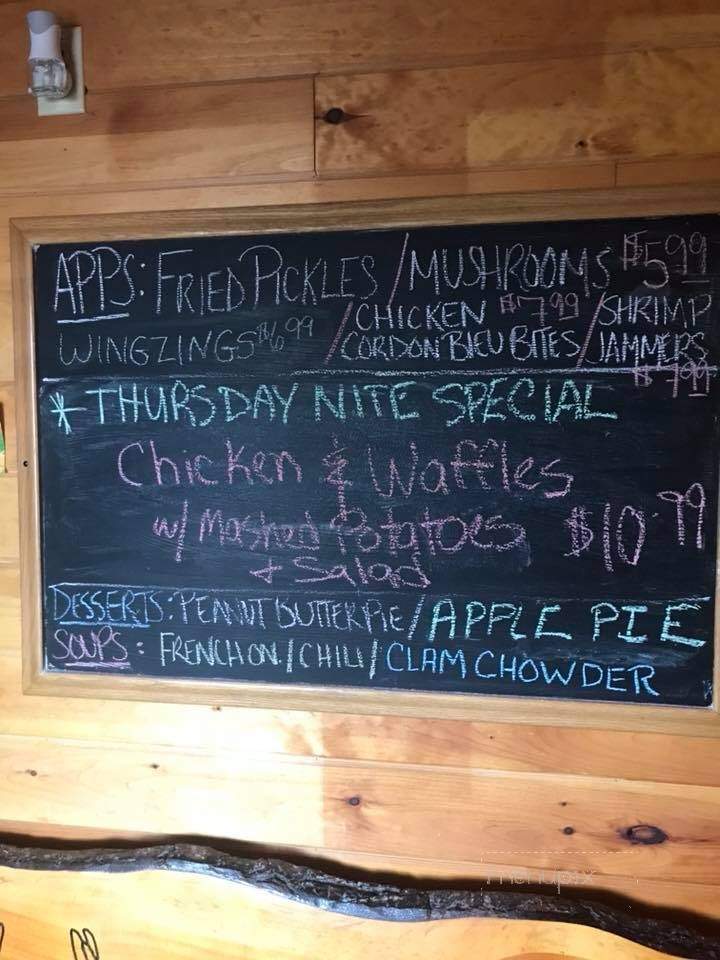 APPS: FRIED PICKLES / MUSHROOMS $5.99
WINGZINGS $6.99 / CHICKEN CORDON BLEU BITES $7.99 / SHRIMP JAMMERS $7.99
* THURSDAY NITE SPECIAL
Chicken & Waffles
w/ Mashed Potatoes $10.99
+ Salad
DESSERTS: PEANUT BUTTER PIE / APPLE PIE
SOUPS: FRENCH ON. / CHILI / CLAM CHOWDER
menupix